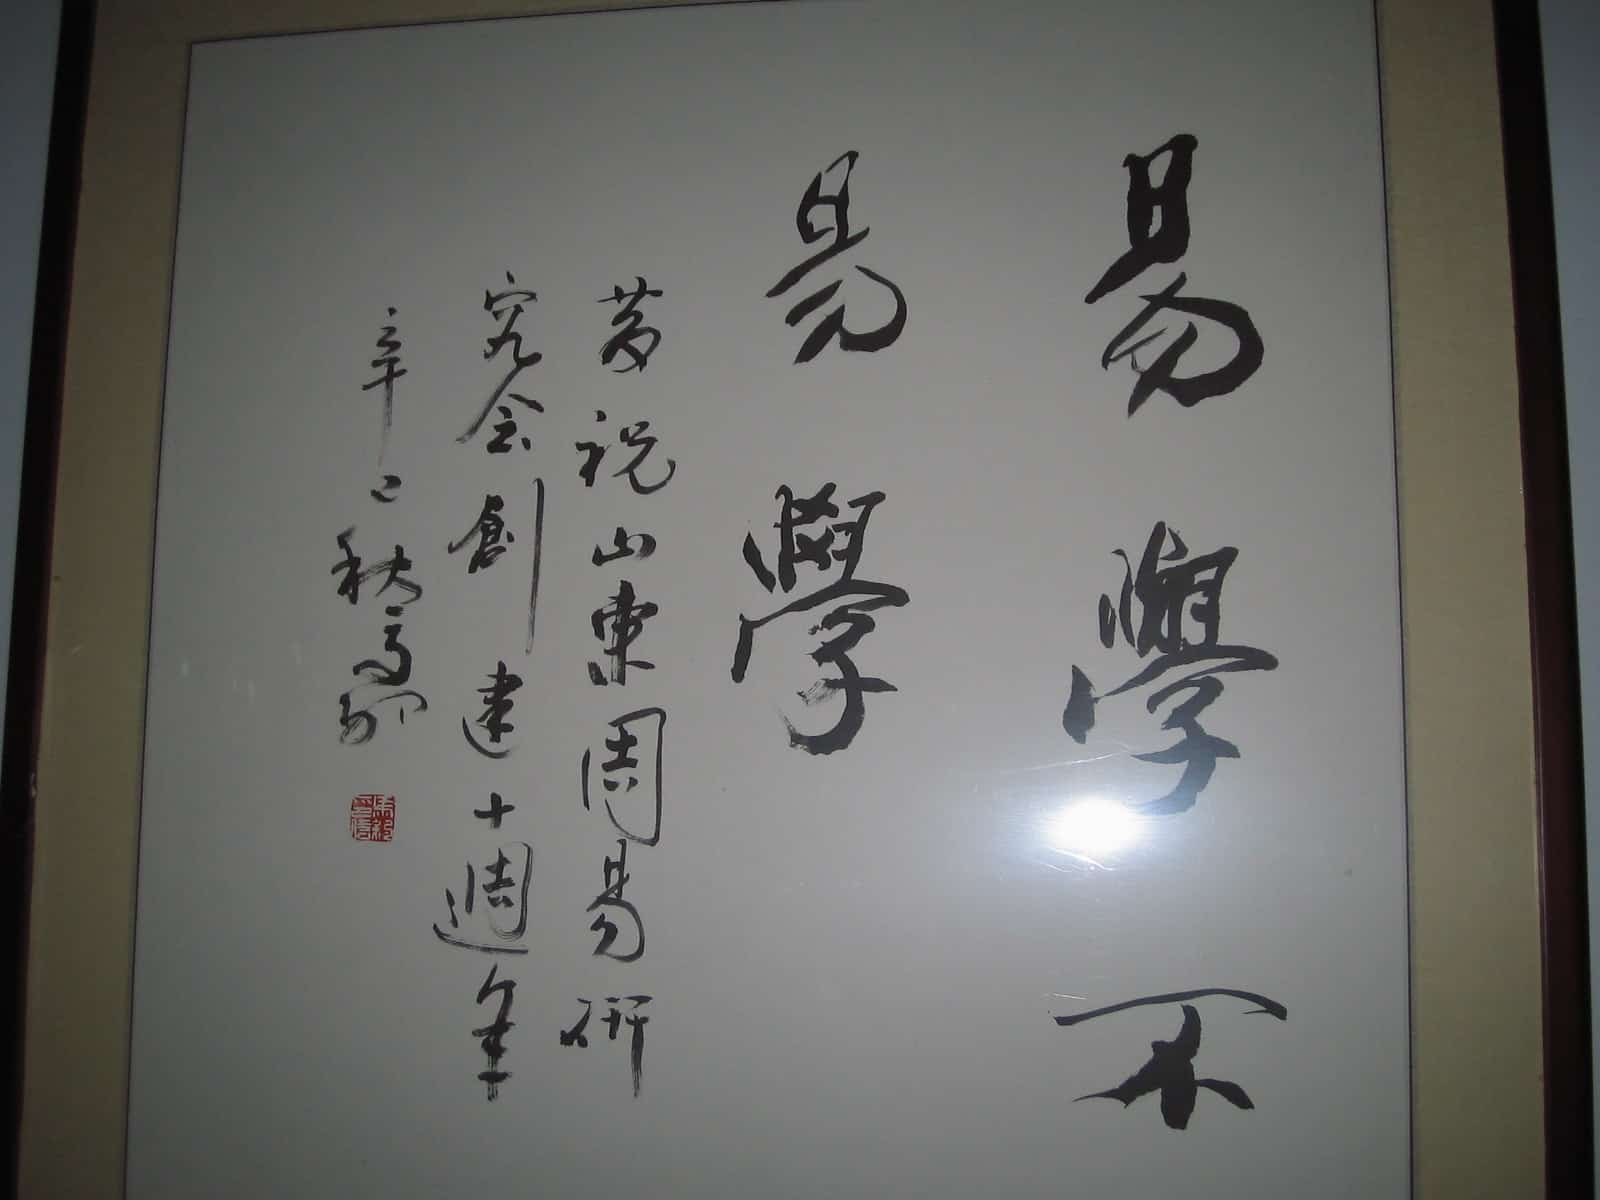 易學不
易學
祝山東周易研
究会創建十週年
辛巳秋